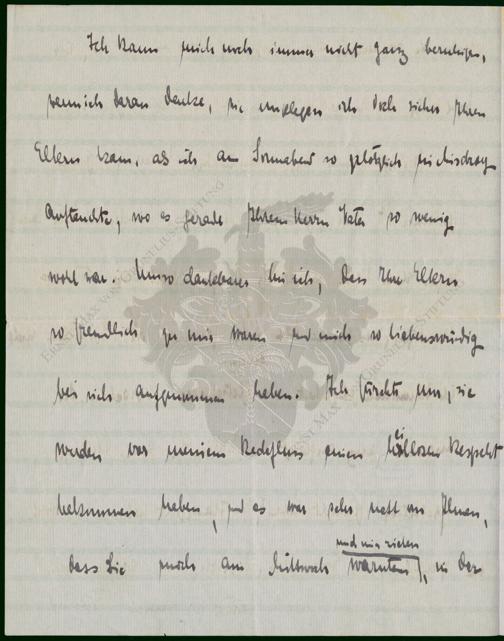 Ich kann mich noch immer nicht ganz beruhigen,
wenn ich daran denke, wie ungelegen ich doch sicher Ihren
Eltern kam, als ich am Sonnabend so plötzlich in Misdroy
auftauchte, wo es gerade Ihrem Herrn Vater so wenig
wohl war. Umso dankbarer bin ich, dass Ihre Eltern
so freundlich zu mir waren und mich so liebenswürdig
bei sich aufgenommen haben. Ich fürchte nur, sie
werden vor meinem Redefluss einen heillosen Respekt
bekommen haben, und es war sehr nett von Ihnen,
und mir rieten
dass Sie mich am Mittwoch warnten, in der
ERNST MAX VON GRUNELIUS-STIFTUNG
ERNST MAX VON GRUNELIUS-STIFTUNG